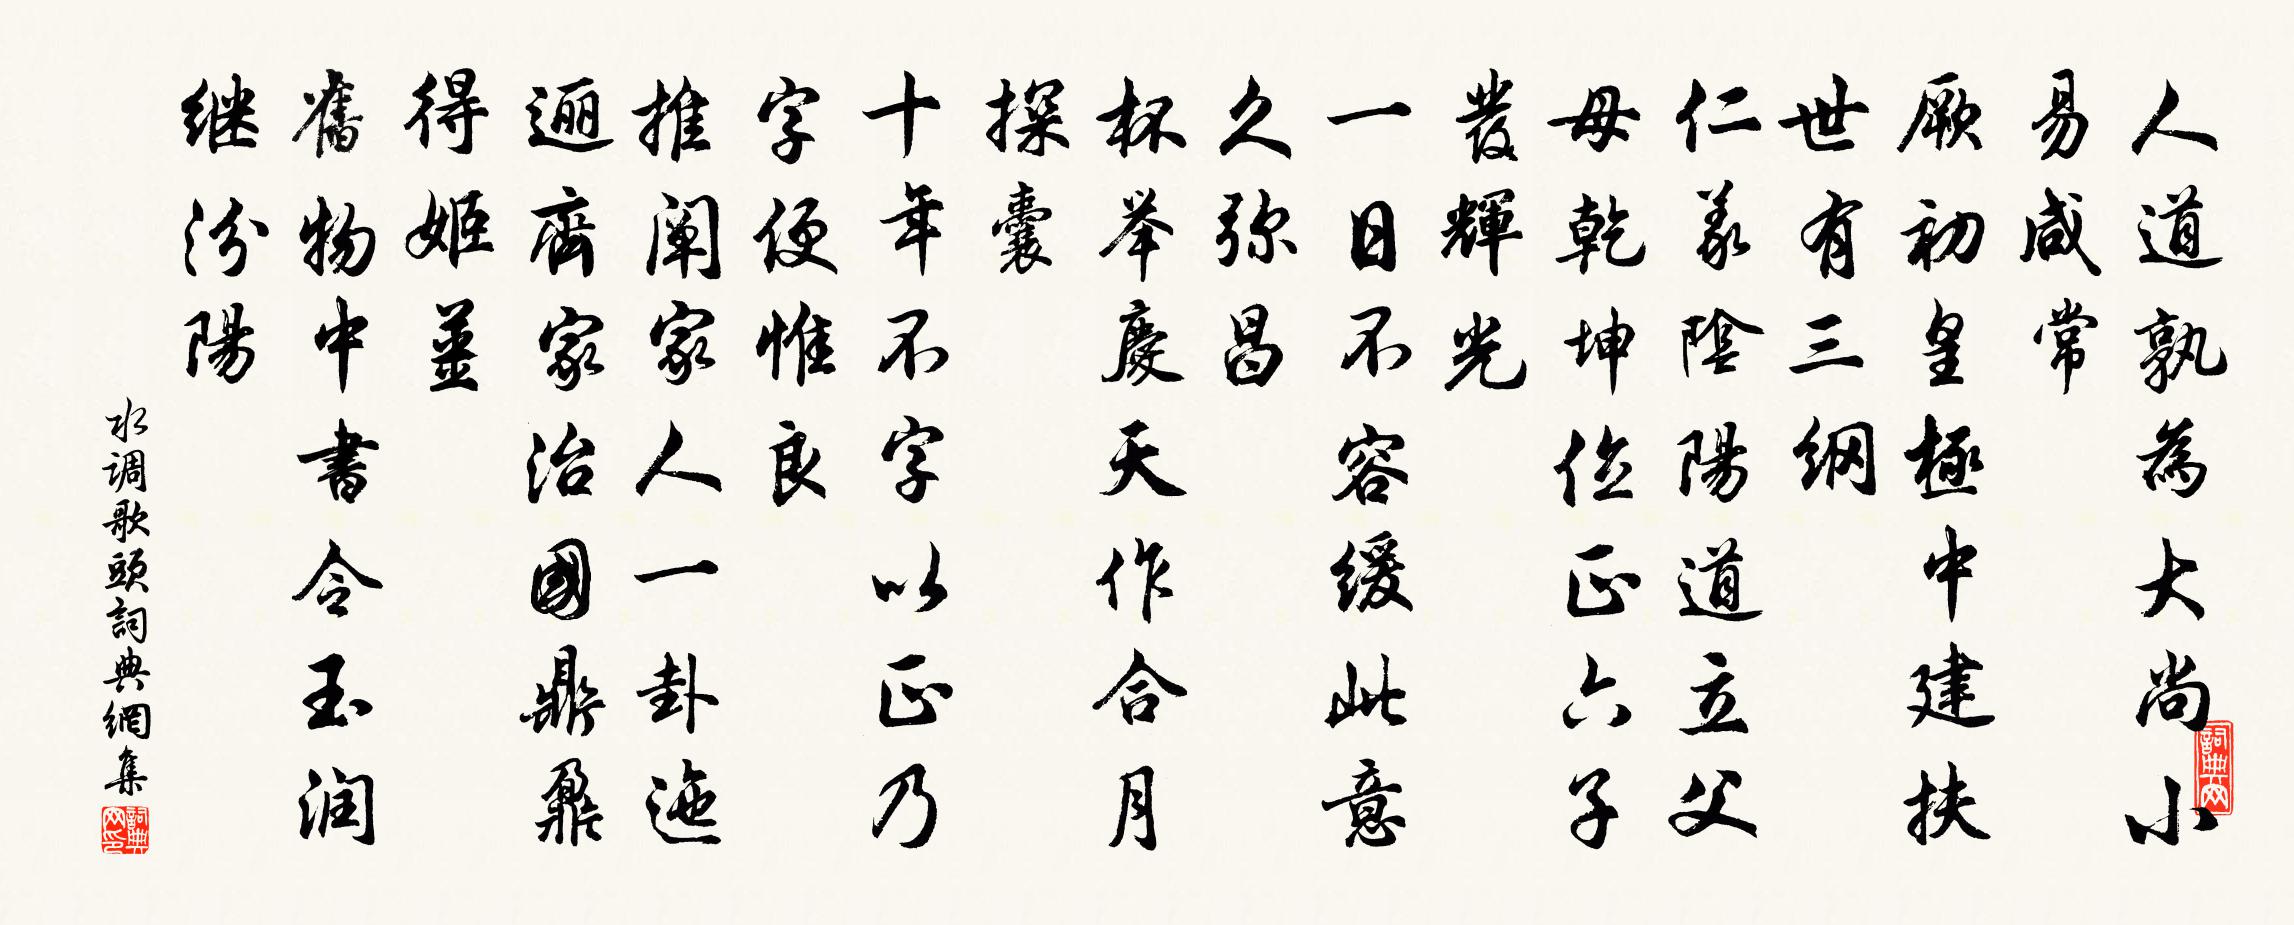 人道孰為大尚小
易咸常
厥初皇極中建扶
世有三纲
仁義陰陽道立父
母乾坤位正六子
發輝光
一日不容緩此意
久弥昌
杯举慶天作合月
探囊
十年不字以正乃
字便惟良
推阐家人一卦迤
逦齊家治國鼎鼐
得姬姜
舊物中書令玉润
继汾陽
水调歌頭詞典網集
詞典网
詞典网印